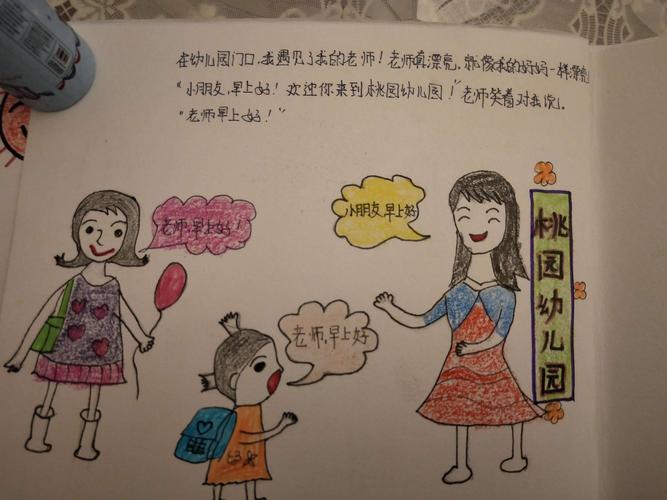 在幼儿园门口,我遇见了我的老师!老师真漂亮,就像我的妈妈一样漂亮
“小朋友,早上好!欢迎你来到桃园幼儿园!”老师笑着对我说。
“老师早上好!”
老师,早上好!
小朋友早上好
老师,早上好
桃园幼儿园